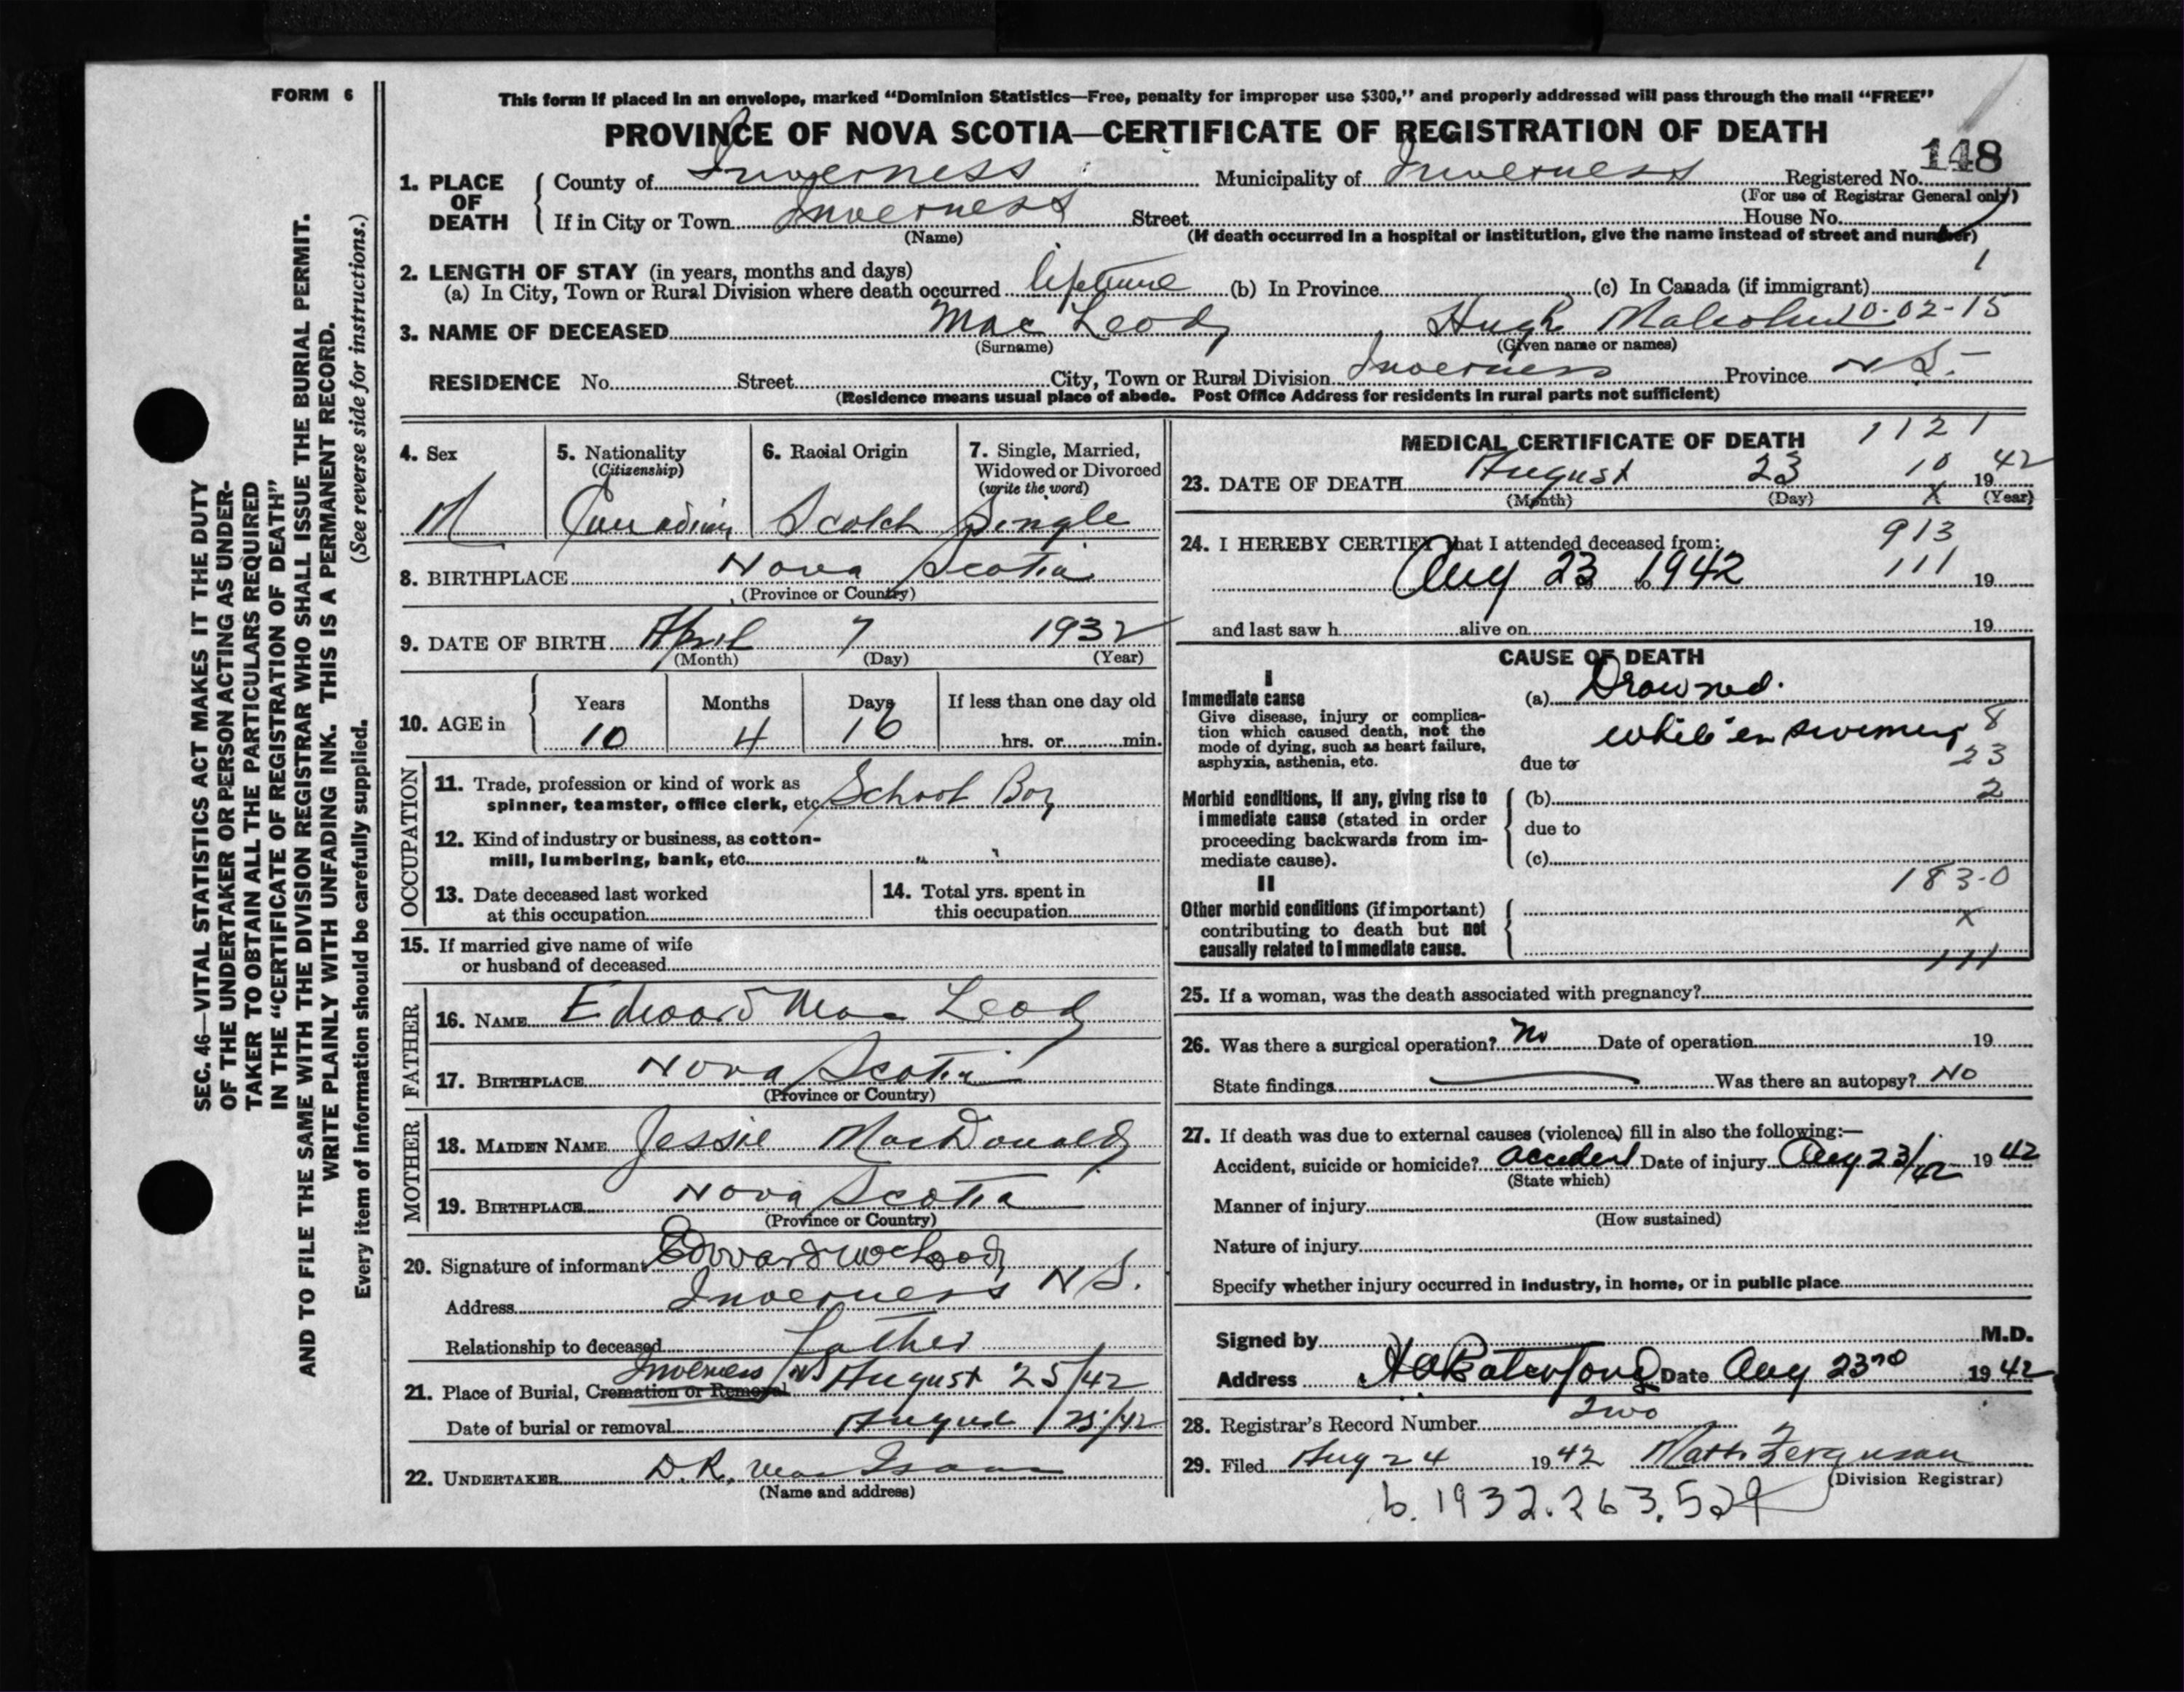 FORM 6
SEC. 46—VITAL STATISTICS ACT MAKES IT THE DUTY
OF THE UNDERTAKER OR PERSON ACTING AS UNDER-
TAKER TO OBTAIN ALL THE PARTICULARS REQUIRED
IN THE "CERTIFICATE OF REGISTRATION OF DEATH"
AND TO FILE THE SAME WITH THE DIVISION REGISTRAR WHO SHALL ISSUE THE BURIAL PERMIT.
WRITE PLAINLY WITH UNFADING INK. THIS IS A PERMANENT RECORD.
Every item of information should be carefully supplied. (See reverse side for instructions.)
This form if placed in an envelope, marked "Dominion Statistics—Free, penalty for improper use $300," and properly addressed will pass through the mail "FREE"
PROVINCE OF NOVA SCOTIA—CERTIFICATE OF REGISTRATION OF DEATH
148
1. PLACE OF DEATH
County of Inverness Municipality of Inverness Registered No.
(For use of Registrar General only)
If in City or Town Inverness Street House No.
(Name) (If death occurred in a hospital or institution, give the name instead of street and number)
1
2. LENGTH OF STAY (in years, months and days)
(a) In City, Town or Rural Division where death occurred lifetime (b) In Province (c) In Canada (if immigrant)
3. NAME OF DECEASED Mac Leod, Hugh Malcolm 10-02-15
(Surname) (Given name or names)
RESIDENCE No. Street City, Town or Rural Division Inverness Province N S.
(Residence means usual place of abode. Post Office Address for residents in rural parts not sufficient)
4. Sex
M
5. Nationality
(Citizenship)
Canadian
6. Racial Origin
Scotch
7. Single, Married,
Widowed or Divorced
(write the word)
Single
8. BIRTHPLACE Nova Scotia
(Province or Country)
9. DATE OF BIRTH April 7 1932
(Month) (Day) (Year)
10. AGE in
Years Months Days If less than one day old
10 4 16 hrs. or min.
OCCUPATION
11. Trade, profession or kind of work as
spinner, teamster, office clerk, etc. School Boy
12. Kind of industry or business, as cotton-
mill, lumbering, bank, etc. " "
13. Date deceased last worked
at this occupation
14. Total yrs. spent in
this occupation
15. If married give name of wife
or husband of deceased
FATHER
16. NAME Edward Mac Leod
17. BIRTHPLACE Nova Scotia
(Province or Country)
MOTHER
18. MAIDEN NAME Jessie MacDonald
19. BIRTHPLACE Nova Scotia
(Province or Country)
20. Signature of informant Edward McLeod
Address Inverness N S.
Relationship to deceased Father
Inverness NS
21. Place of Burial, Cremation or Removal August 25/42
Date of burial or removal August 25/42
22. UNDERTAKER D.R. Mac Isaac
(Name and address)
MEDICAL CERTIFICATE OF DEATH 1121
10
23. DATE OF DEATH August 23 19 42
(Month) (Day) X (Year)
913
24. I HEREBY CERTIFY that I attended deceased from:
Aug 23 to 1942 111 19
and last saw h alive on 19
CAUSE OF DEATH
I
Immediate cause
Give disease, injury or complica-
tion which caused death, not the
mode of dying, such as heart failure,
asphyxia, asthenia, etc.
(a) Drowned.
while in swiming
due to
8
23
2
Morbid conditions, if any, giving rise to
immediate cause (stated in order
proceeding backwards from im-
mediate cause).
(b)
due to
(c)
183-0
II
Other morbid conditions (if important)
contributing to death but not
causally related to immediate cause.
X
111
25. If a woman, was the death associated with pregnancy?
26. Was there a surgical operation? No Date of operation 19
State findings Was there an autopsy? No
27. If death was due to external causes (violence) fill in also the following:—
Accident, suicide or homicide? accident Date of injury Aug 23/42 19 42
(State which)
Manner of injury
(How sustained)
Nature of injury
Specify whether injury occurred in industry, in home, or in public place
Signed by M.D.
Address Date Aug 23rd 19 42
28. Registrar's Record Number Two
29. Filed Aug 24 19 42 Matt Ferguson
(Division Registrar)
b. 1932.263.529